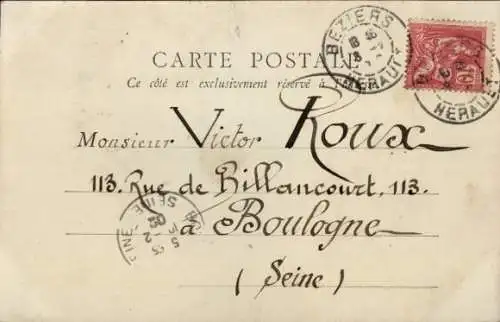 CARTE POSTALE
Ce côté est exclusivement réservé à l'
BEZIERS
HERAULT
HERAULT
Monsieur Victor Roux
113. Rue de Billancourt. 113.
à Boulogne
(Seine)
SEINE